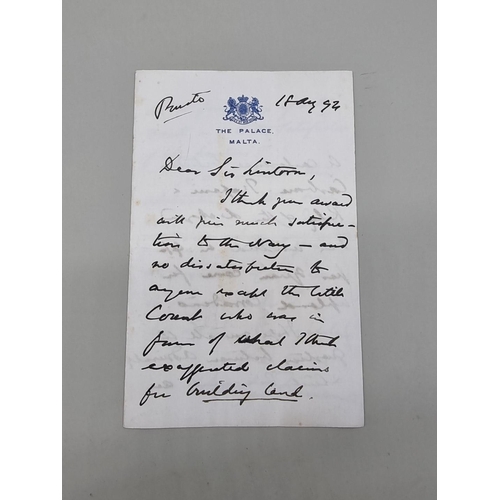 Private 18 Aug 92
THE PALACE,
MALTA.
Dear Sir Lintorn,
I think your award
will give much satisfac-
tion to the Navy – and
no dissatisfaction to
anyone except the little
who was in
favor of what I think
exaggerated claims
for building land.